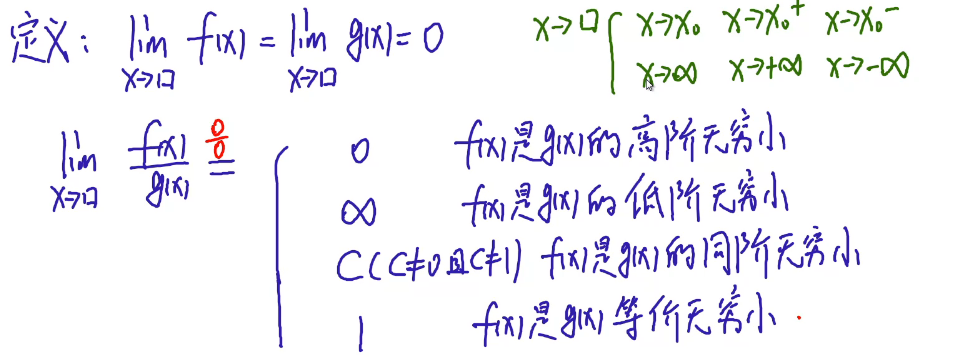 定义: lim x→□ f(x) = lim x→□ g(x) = 0
x→□ { x→x₀ x→x₀⁺ x→x₀⁻
x→∞ x→+∞ x→-∞
lim x→□ f(x)/g(x) 0/0 = { 0 f(x)是g(x)的高阶无穷小
∞ f(x)是g(x)的低阶无穷小
C(C≠0且C≠1) f(x)是g(x)的同阶无穷小
1 f(x)是g(x)等价无穷小.